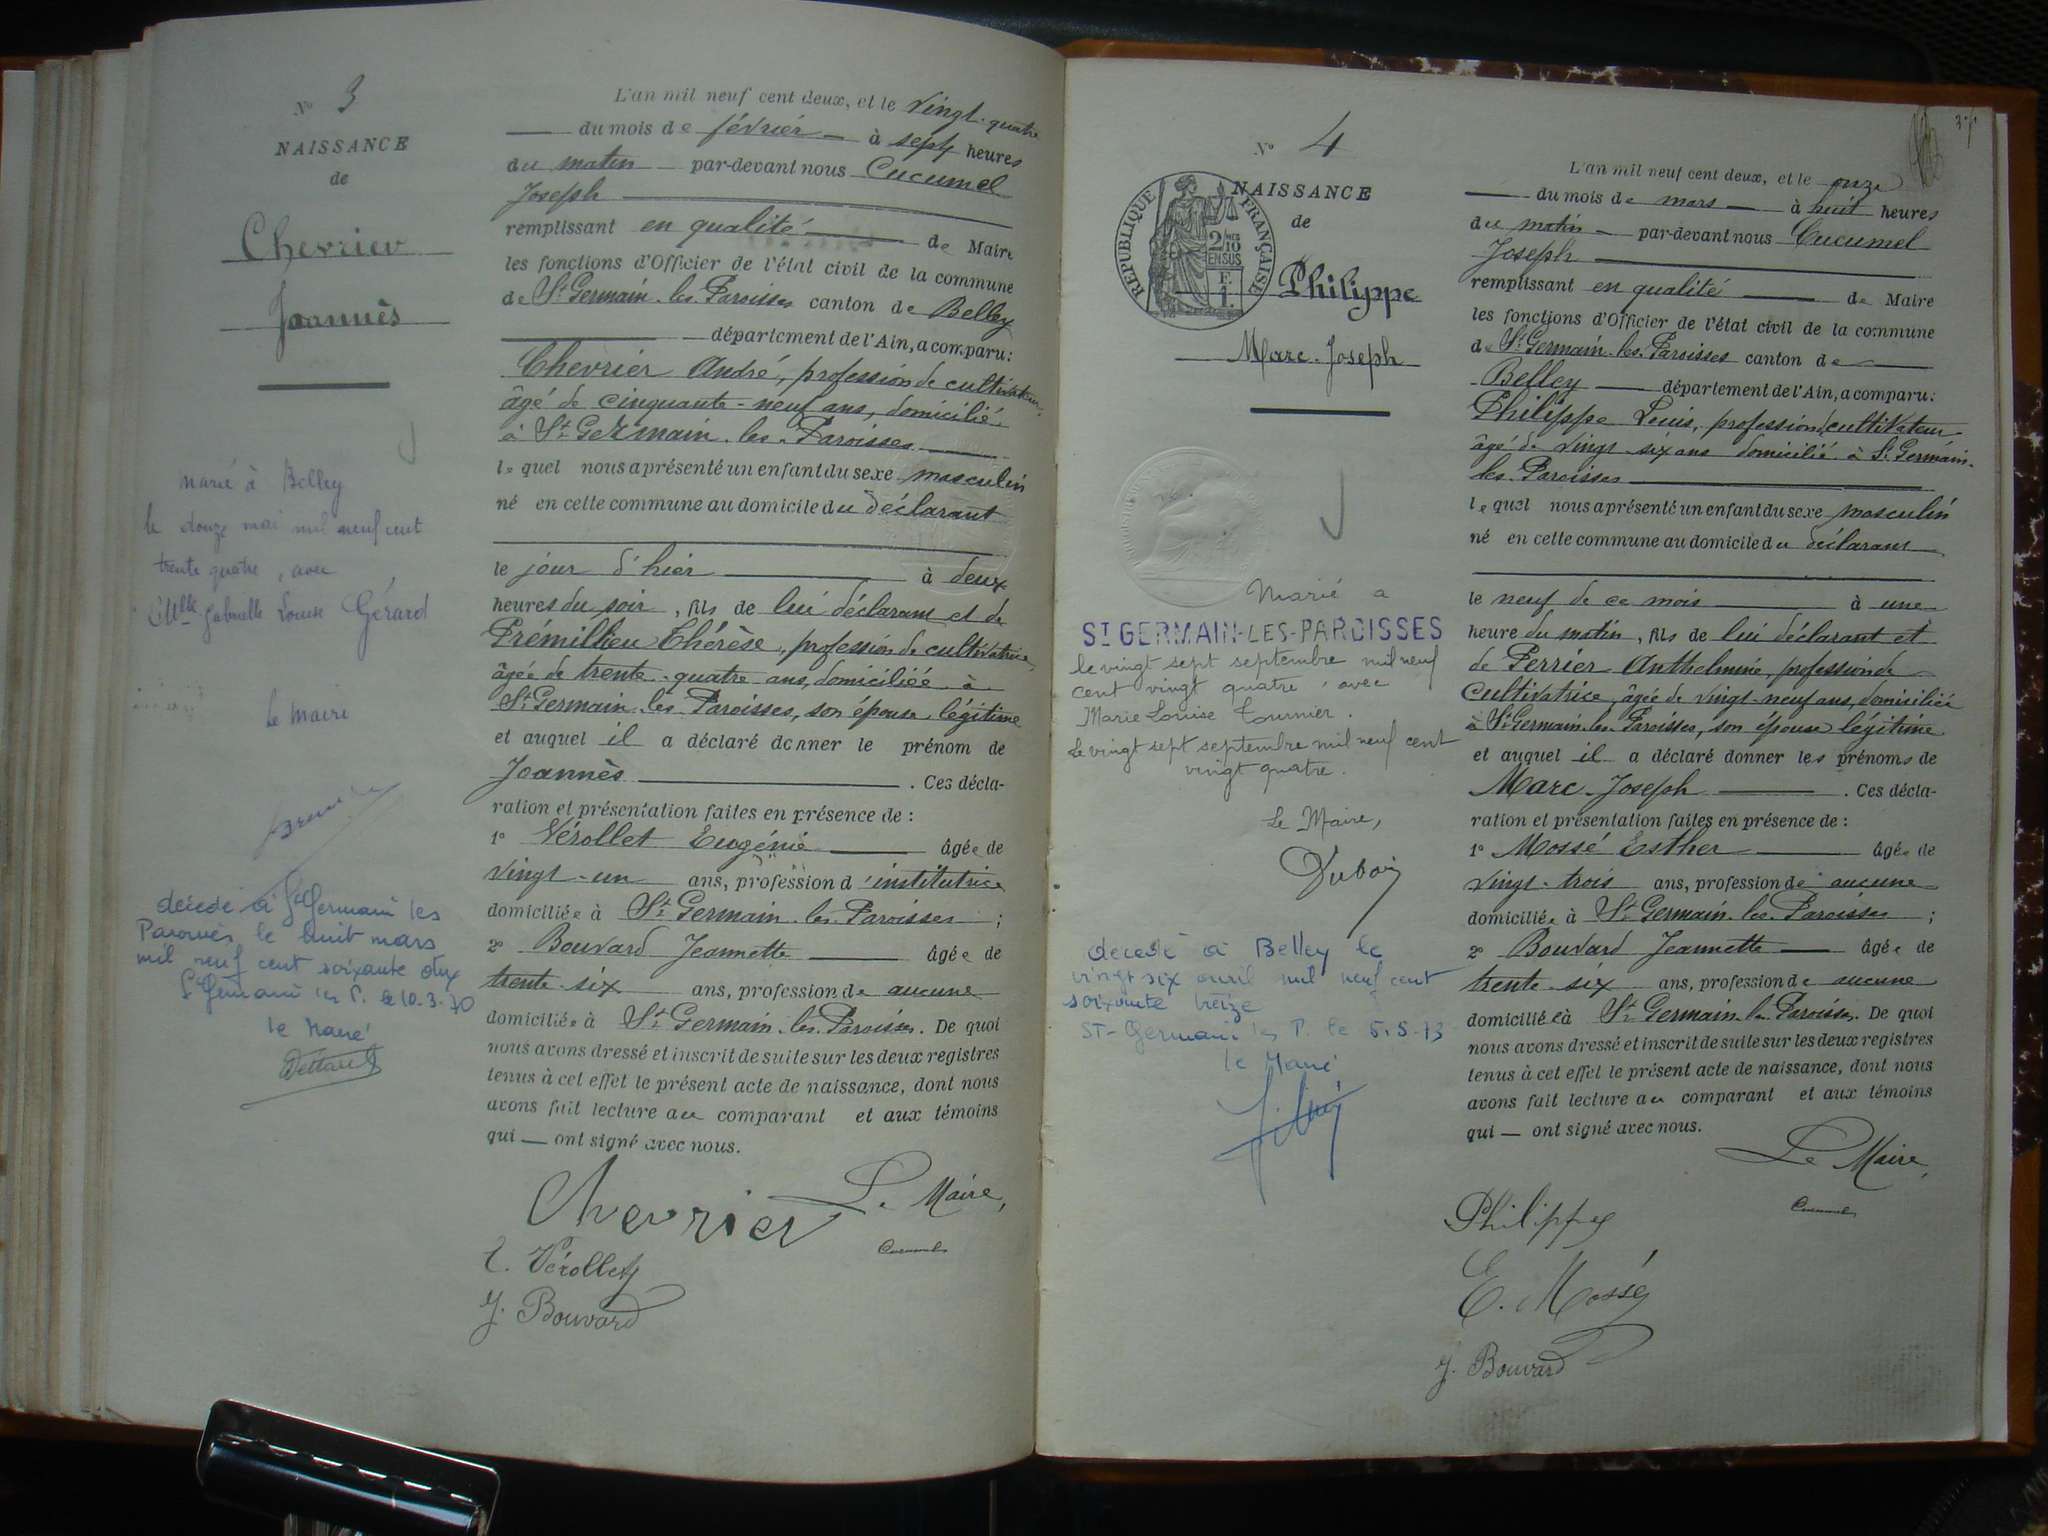 Nº 3
NAISSANCE
de
Chevrier
Joannès
marié à Belley
le douze mai mil neuf cent
trente quatre, avec
Mlle Gabrielle Louise Gérard
Le Maire
décédé à St Germain les
Paroisses le huit mars
mil neuf cent soixante dix
St Germain les P. le 10.3.70
le Maire
L'an mil neuf cent deux, et le vingt-quatre
du mois de février à sept heures
du matin par-devant nous Cucumel
Joseph
remplissant en qualité de Maire
les fonctions d'Officier de l'état civil de la commune
de St Germain-les-Paroisses canton de Belley
département de l'Ain, a comparu:
Chevrier André, profession de cultivateur,
âgé de cinquante-neuf ans, domicilié
à St Germain-les-Paroisses
lequel nous a présenté un enfant du sexe masculin
né en cette commune au domicile du déclarant
le jour d'hier à deux
heures du soir, fils de lui déclarant et de
Prémillieu Thérèse, profession de cultivatrice,
âgée de trente-quatre ans, domiciliée à
St Germain-les-Paroisses, son épouse légitime
et auquel il a déclaré donner le prénom de
Joannès. Ces décla-
ration et présentation faites en présence de :
1º Vérollet Eugénie âgée de
vingt-un ans, profession d'institutrice
domiciliée à St Germain-les-Paroisses ;
2º Bouvard Jeannette âgée de
trente-six ans, profession de aucune
domiciliée à St Germain-les-Paroisses. De quoi
nous avons dressé et inscrit de suite sur les deux registres
tenus à cet effet le présent acte de naissance, dont nous
avons fait lecture au comparant et aux témoins
qui — ont signé avec nous.
Le Maire,
Chevrier
Cucumel
E. Vérollet
J. Bouvard
37
Nº 4
NAISSANCE
de
RÉPUBLIQUE FRANÇAISE
2/10
EN SUS
F.
1.
Philippe
Marc-Joseph
Marié à
ST GERMAIN-LES-PAROISSES
le vingt sept septembre mil neuf
cent vingt quatre, avec
Marie Louise Tournier.
Le vingt sept septembre mil neuf cent
vingt quatre.
Le Maire,
Dubois
décédé à Belley le
vingt six avril mil neuf cent
soixante treize
ST-Germain les P. le 5.5-73
le Maire
L'an mil neuf cent deux, et le onze
du mois de mars à huit heures
du matin par-devant nous Cucumel
Joseph
remplissant en qualité de Maire
les fonctions d'Officier de l'état civil de la commune
de St Germain-les-Paroisses canton de
Belley département de l'Ain, a comparu:
Philippe Louis, profession cultivateur
âgé de vingt-six ans domicilié à St Germain-
les-Paroisses
lequel nous a présenté un enfant du sexe masculin
né en cette commune au domicile du déclarant
le neuf de ce mois à une
heure du matin, fils de lui déclarant et
de Perrier Anthelmine, profession de
cultivatrice, âgée de vingt-neuf ans, domiciliée
à St Germain-les-Paroisses, son épouse légitime
et auquel il a déclaré donner les prénoms de
Marc-Joseph. Ces décla-
ration et présentation faites en présence de :
1º Mossé Esther âgée de
vingt-trois ans, profession de aucune
domiciliée à St Germain-les-Paroisses ;
2º Bouvard Jeannette âgée de
trente-six ans, profession de aucune
domiciliée à St Germain-les-Paroisses. De quoi
nous avons dressé et inscrit de suite sur les deux registres
tenus à cet effet le présent acte de naissance, dont nous
avons fait lecture au comparant et aux témoins
qui — ont signé avec nous.
Le Maire,
Cucumel
Philippe
E. Mossé
J. Bouvard